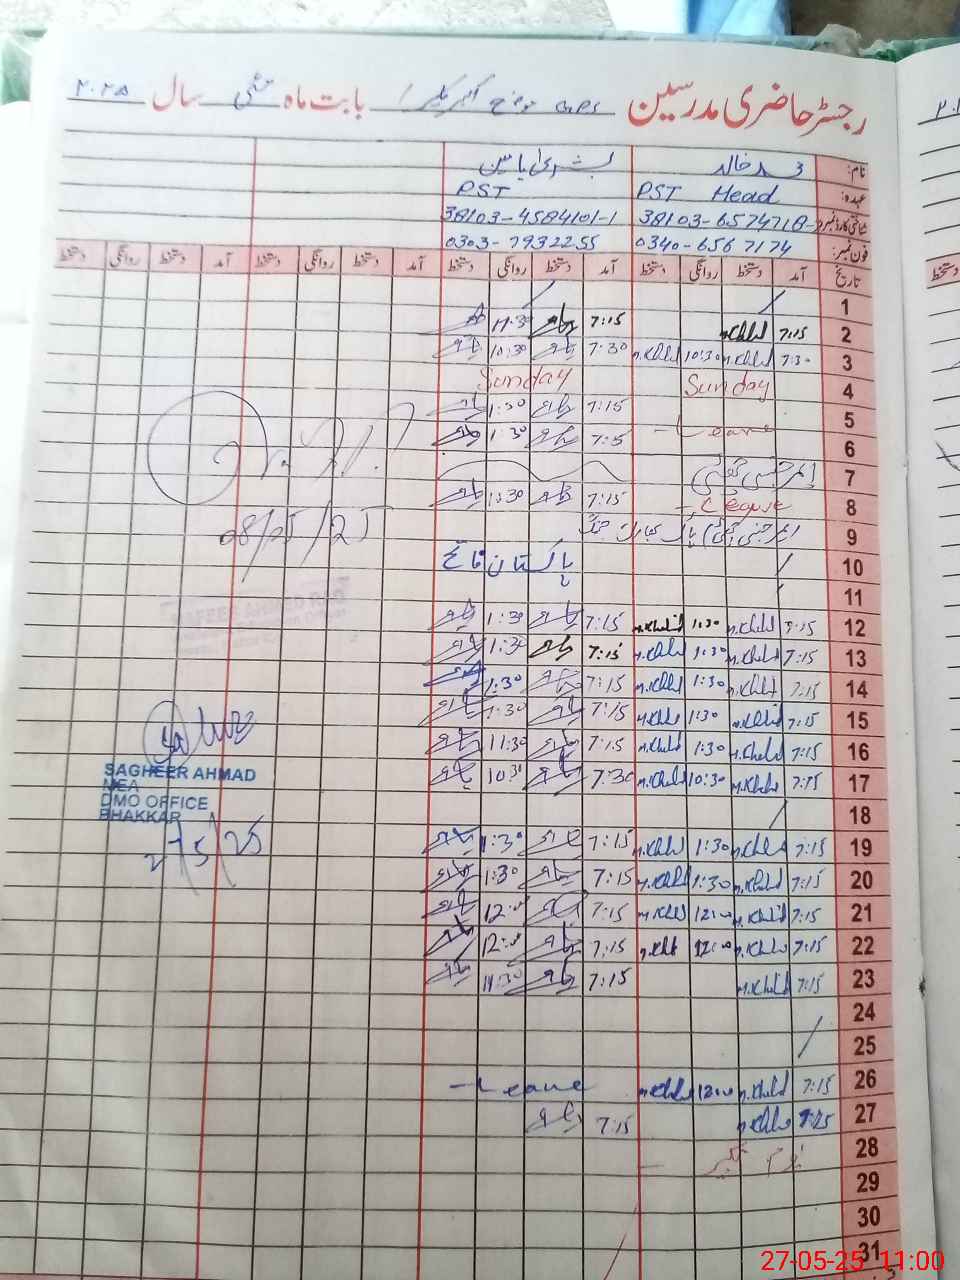 رجسٹر حاضری مدرسین GPS موضع بابت ماہ مئی سال ۲۰۲۵
نام: محمد خالد بشریٰ یاسین
عہدہ: PST Head PST
شناختی کارڈ نمبر 38103-6574718- 38103-4584101-1
فون نمبر: 0340-6567174 0303-7932255
تاریخ آمد دستخط روانگی دستخط آمد دستخط روانگی دستخط آمد دستخط روانگی دستخط آمد دستخط روانگی دستخط
1
2 7:15 M.Khalid 7:15 11:30
3 7:30 M.Khalid 10:30 M.Khalid 7:30 10:30
4 Sunday Sunday
5 7:15 1:30
6 - Leave 7:5 1:30
7
8 - Leave 7:15 1:30
9
10 پاکستان فاتح
11
12 7:15 M.Khalid 1:30 M.Khalid 7:15 1:30
13 7:15 M.Khalid 1:30 M.Khalid 7:15 1:30
14 7:15 M.Khalid 1:30 M.Khalid 7:15 1:30
15 7:15 M.Khalid 1:30 M.Khalid 7:15 1:30
16 7:15 M.Khalid 1:30 M.Khalid 7:15 11:30
17 7:15 M.Khalid 10:30 M.Khalid 7:30 10:30
18
19 7:15 M.Khalid 1:30 M.Khalid 7:15 1:30
20 7:15 M.Khalid 1:30 M.Khalid 7:15 1:30
21 7:15 M.Khalid 12:00 M.Khalid 7:15 12:00
22 7:15 M.Khalid 12:00 M.Khalid 7:15 12:00
23 7:15 M.Khalid 7:15 11:30
24
25
26 7:15 M.Khalid 12:00 M.Khalid - Leave
27 7:15 M.Khalid 7:15
28 یوم تکبیر
29
30
31
08/05/25
SAGHEER AHMAD
MEA
DMO OFFICE
BHAKKAR
27/5/25
27-05-25 11:00